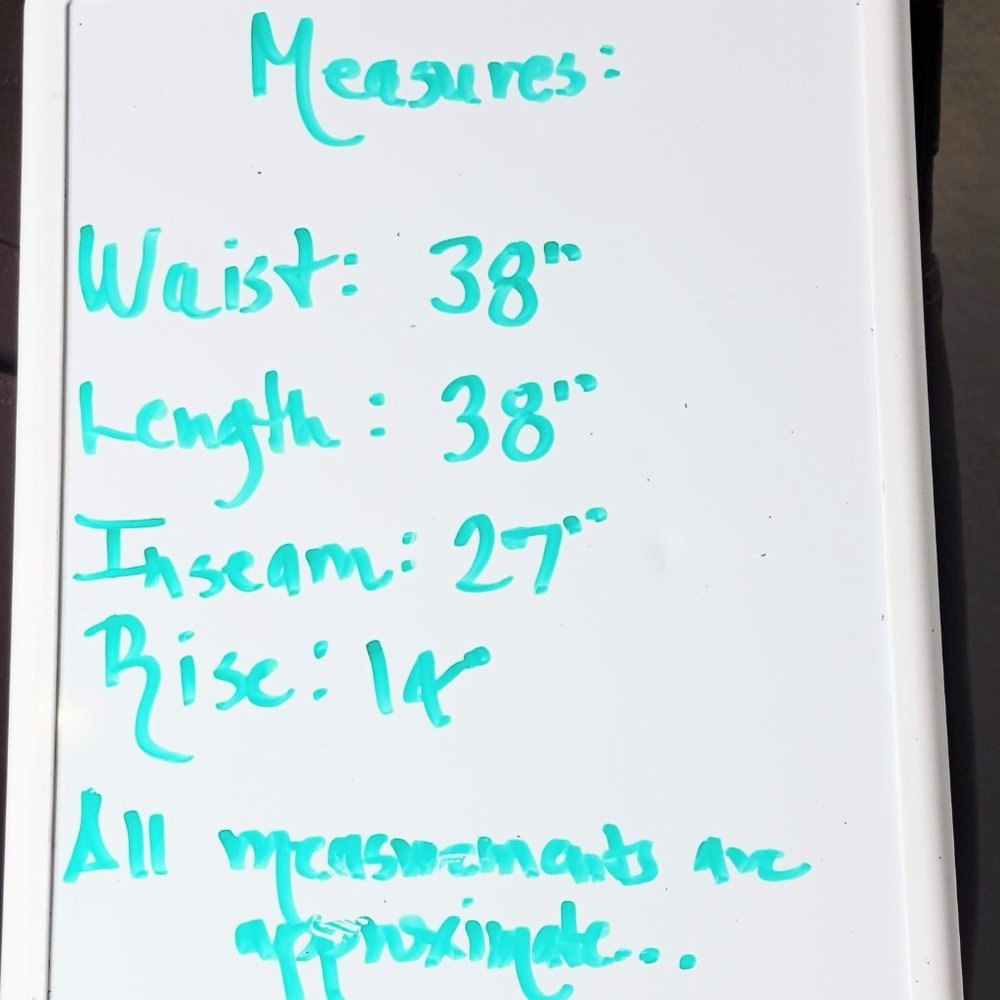 Measures:
Waist: 38"
Length: 38"
Inseam: 27"
Rise: 14"
All measurements are
approximate...